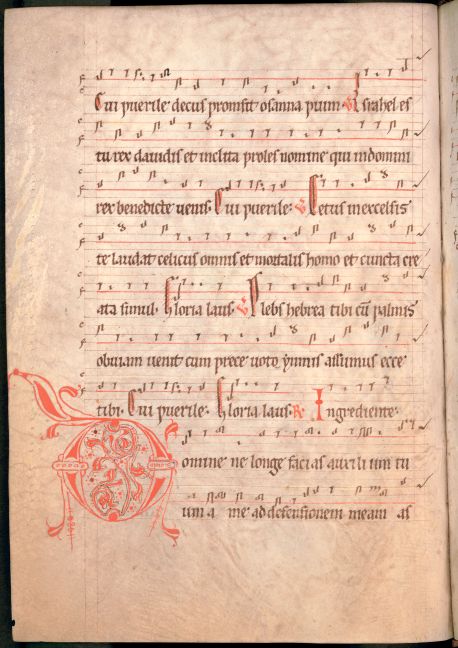 Cui puerile decus promsit osanna pium V Israhel es
tu rex dauidis et inclita proles nomine qui indomini
rex benedicte uenis. Cui puerile. V Cetus inexcelsis
te laudat celicus omnis et mortalis homo et cuncta cre
ata simul. Gloria laus. V Plebs hebrea tibi cū palmis
obuiam uenit cum prece uoto ymnis assumus ecce
tibi. Cui puerile. Gloria laus. R Ingrediente.
Domine ne longe facias auxilium tu
um a me ad defensionem meam as